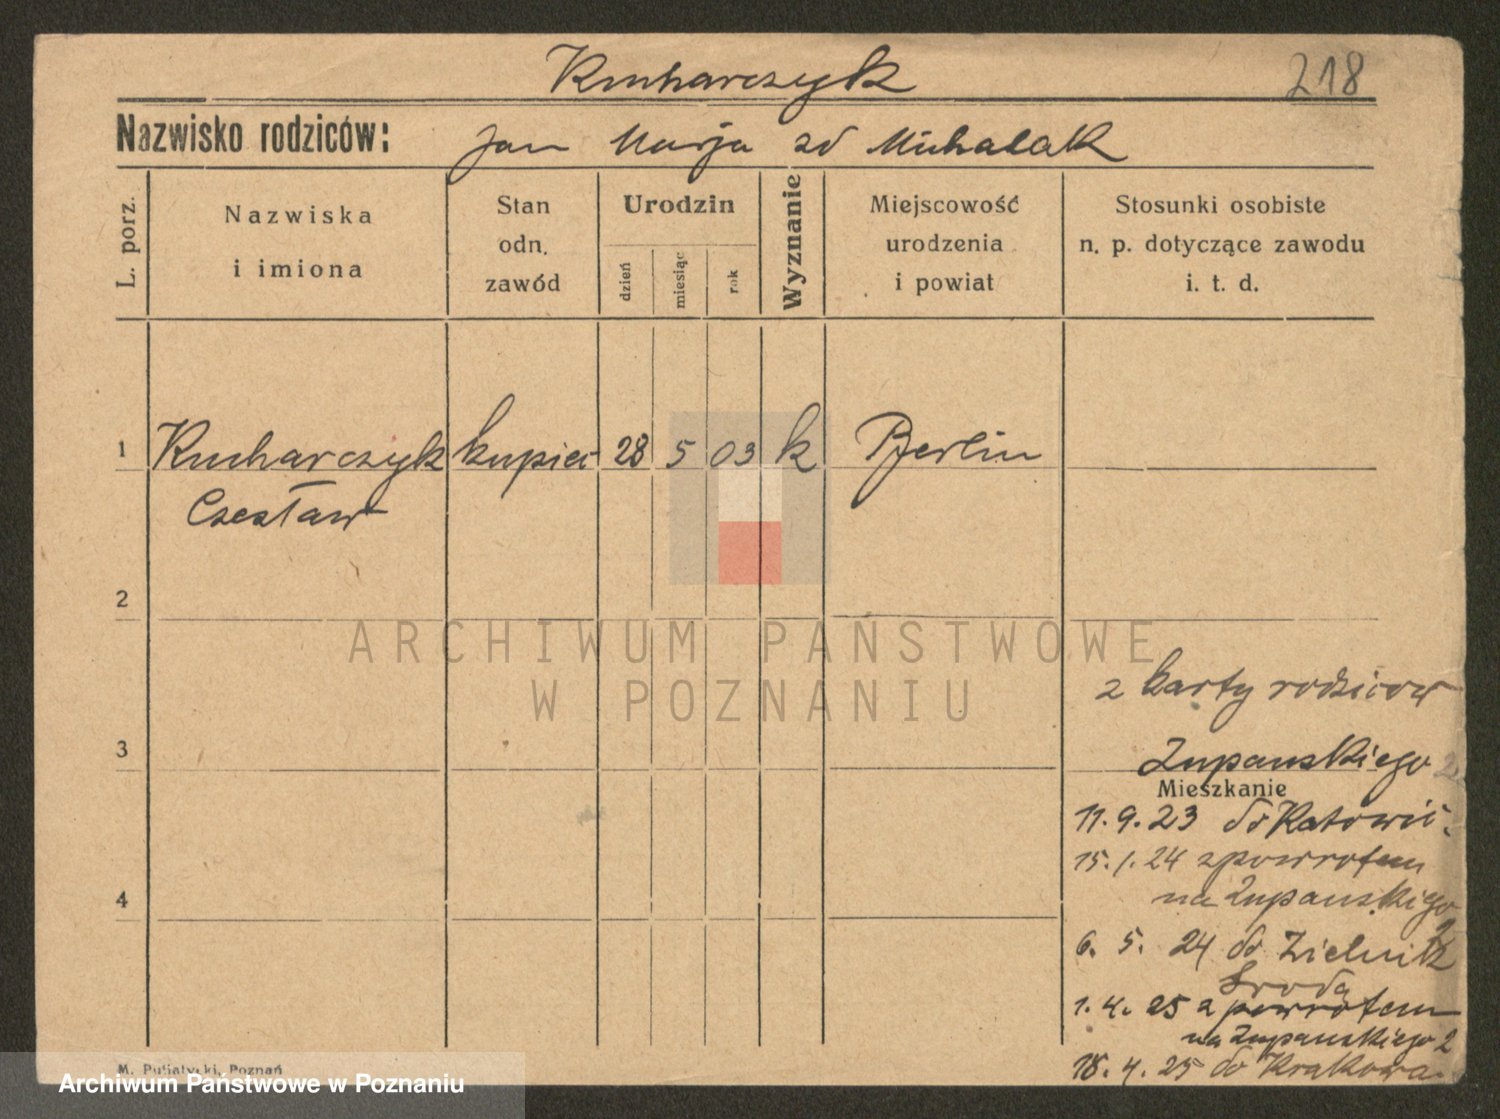 Kucharczyk 218
Nazwisko rodziców: Jan Marja zd Michalak
L. porz.
Nazwiska
i imiona
Stan
odn.
zawód
Urodzin
dzień
miesiąc
rok
Wyznanie
Miejscowość
urodzenia
i powiat
Stosunki osobiste
n. p. dotyczące zawodu
i. t. d.
1 Kucharczyk kupiec 28 5 03 k Berlin
Czesław
2
ARCHIWUM PAŃSTWOWE
W POZNANIU
z karty rodziców
3
Zupanskiego 2
Mieszkanie
11.9.23 do Katowic.
15.1.24 z powrotem
na Zupanskiego
4
2
6. 5. 24 do Zielnik
Środa
1.4.25 z powrotem
na Zupanskiego 2
18.4.25 do Krakowa
M. Putiatycki, Poznań
Archiwum Państwowe w Poznaniu